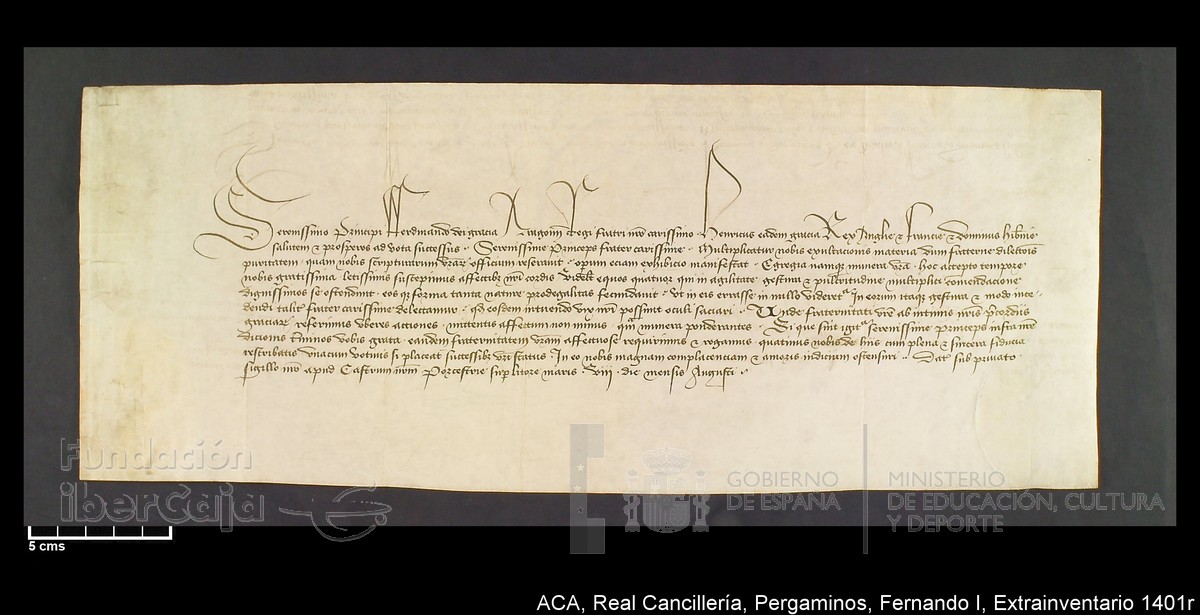 Serenissimo Principi Ferdinando dei gracia Aragonum Regi fratri nr̃o carissimo Henricus eadem gracia Rex Anglie & Francie & Dominus hib̃nie
salutem & prosperos ad vota successus. Serenissime Princeps frater carissime. Multiplicatur nobis exultacionis materia dum fraterne dilectionis
puritatem quam nobis scripturarum vr̃arum officium reserauit opum eciam exhibicio manifestat. Egregia namque munera vr̃a hoc accepto tempore
nobis gratissima letissimis suscepimus affectibꝫ nr̃i cordis Videlt equos quatuor qui in agilitate gestura & pulcritudine multiplici comendacione
dignissimos se ostendunt eos qꝫ forma tanta nature prodegalitas fecundauit vt in eis errasse in nullo videret᷑. In eorum itaqꝫ gestura & modo ince
dendi talit̃ frater carissime delectamur qd̃ eosdem intuendo vix nr̃i possunt oculi saciari. Unde fraternitati vr̃e ab intimis nr̃is p̃cordiis
graciarꝫ referimus vberes actiones mittentis affectum non minus qm̃ munera ponderantes. Si que sint igit᷑ serenissime princeps infra nr̃e
dicionis t̃minos vobis grata eandem fraternitatem vr̃am affectuose requirimus & rogamus quatinus nobis de hiis cum plena & sincera fiducia
rescribatis vnacum votiuis si placeat successibꝫ vr̃i status In eo nobis magnam complacenciam & amoris indicium ostensuri. Dat̃ sub priuato
sigillo nr̃o apud Castrum nr̃m Porcestrie sup̃ litore maris. viii. die mensis Augusti.
Fundación
iberCaja
GOBIERNO
DE ESPAÑA
MINISTERIO
DE EDUCACIÓN, CULTURA
Y DEPORTE
5 cms
ACA, Real Cancillería, Pergaminos, Fernando I, Extrainventario 1401r